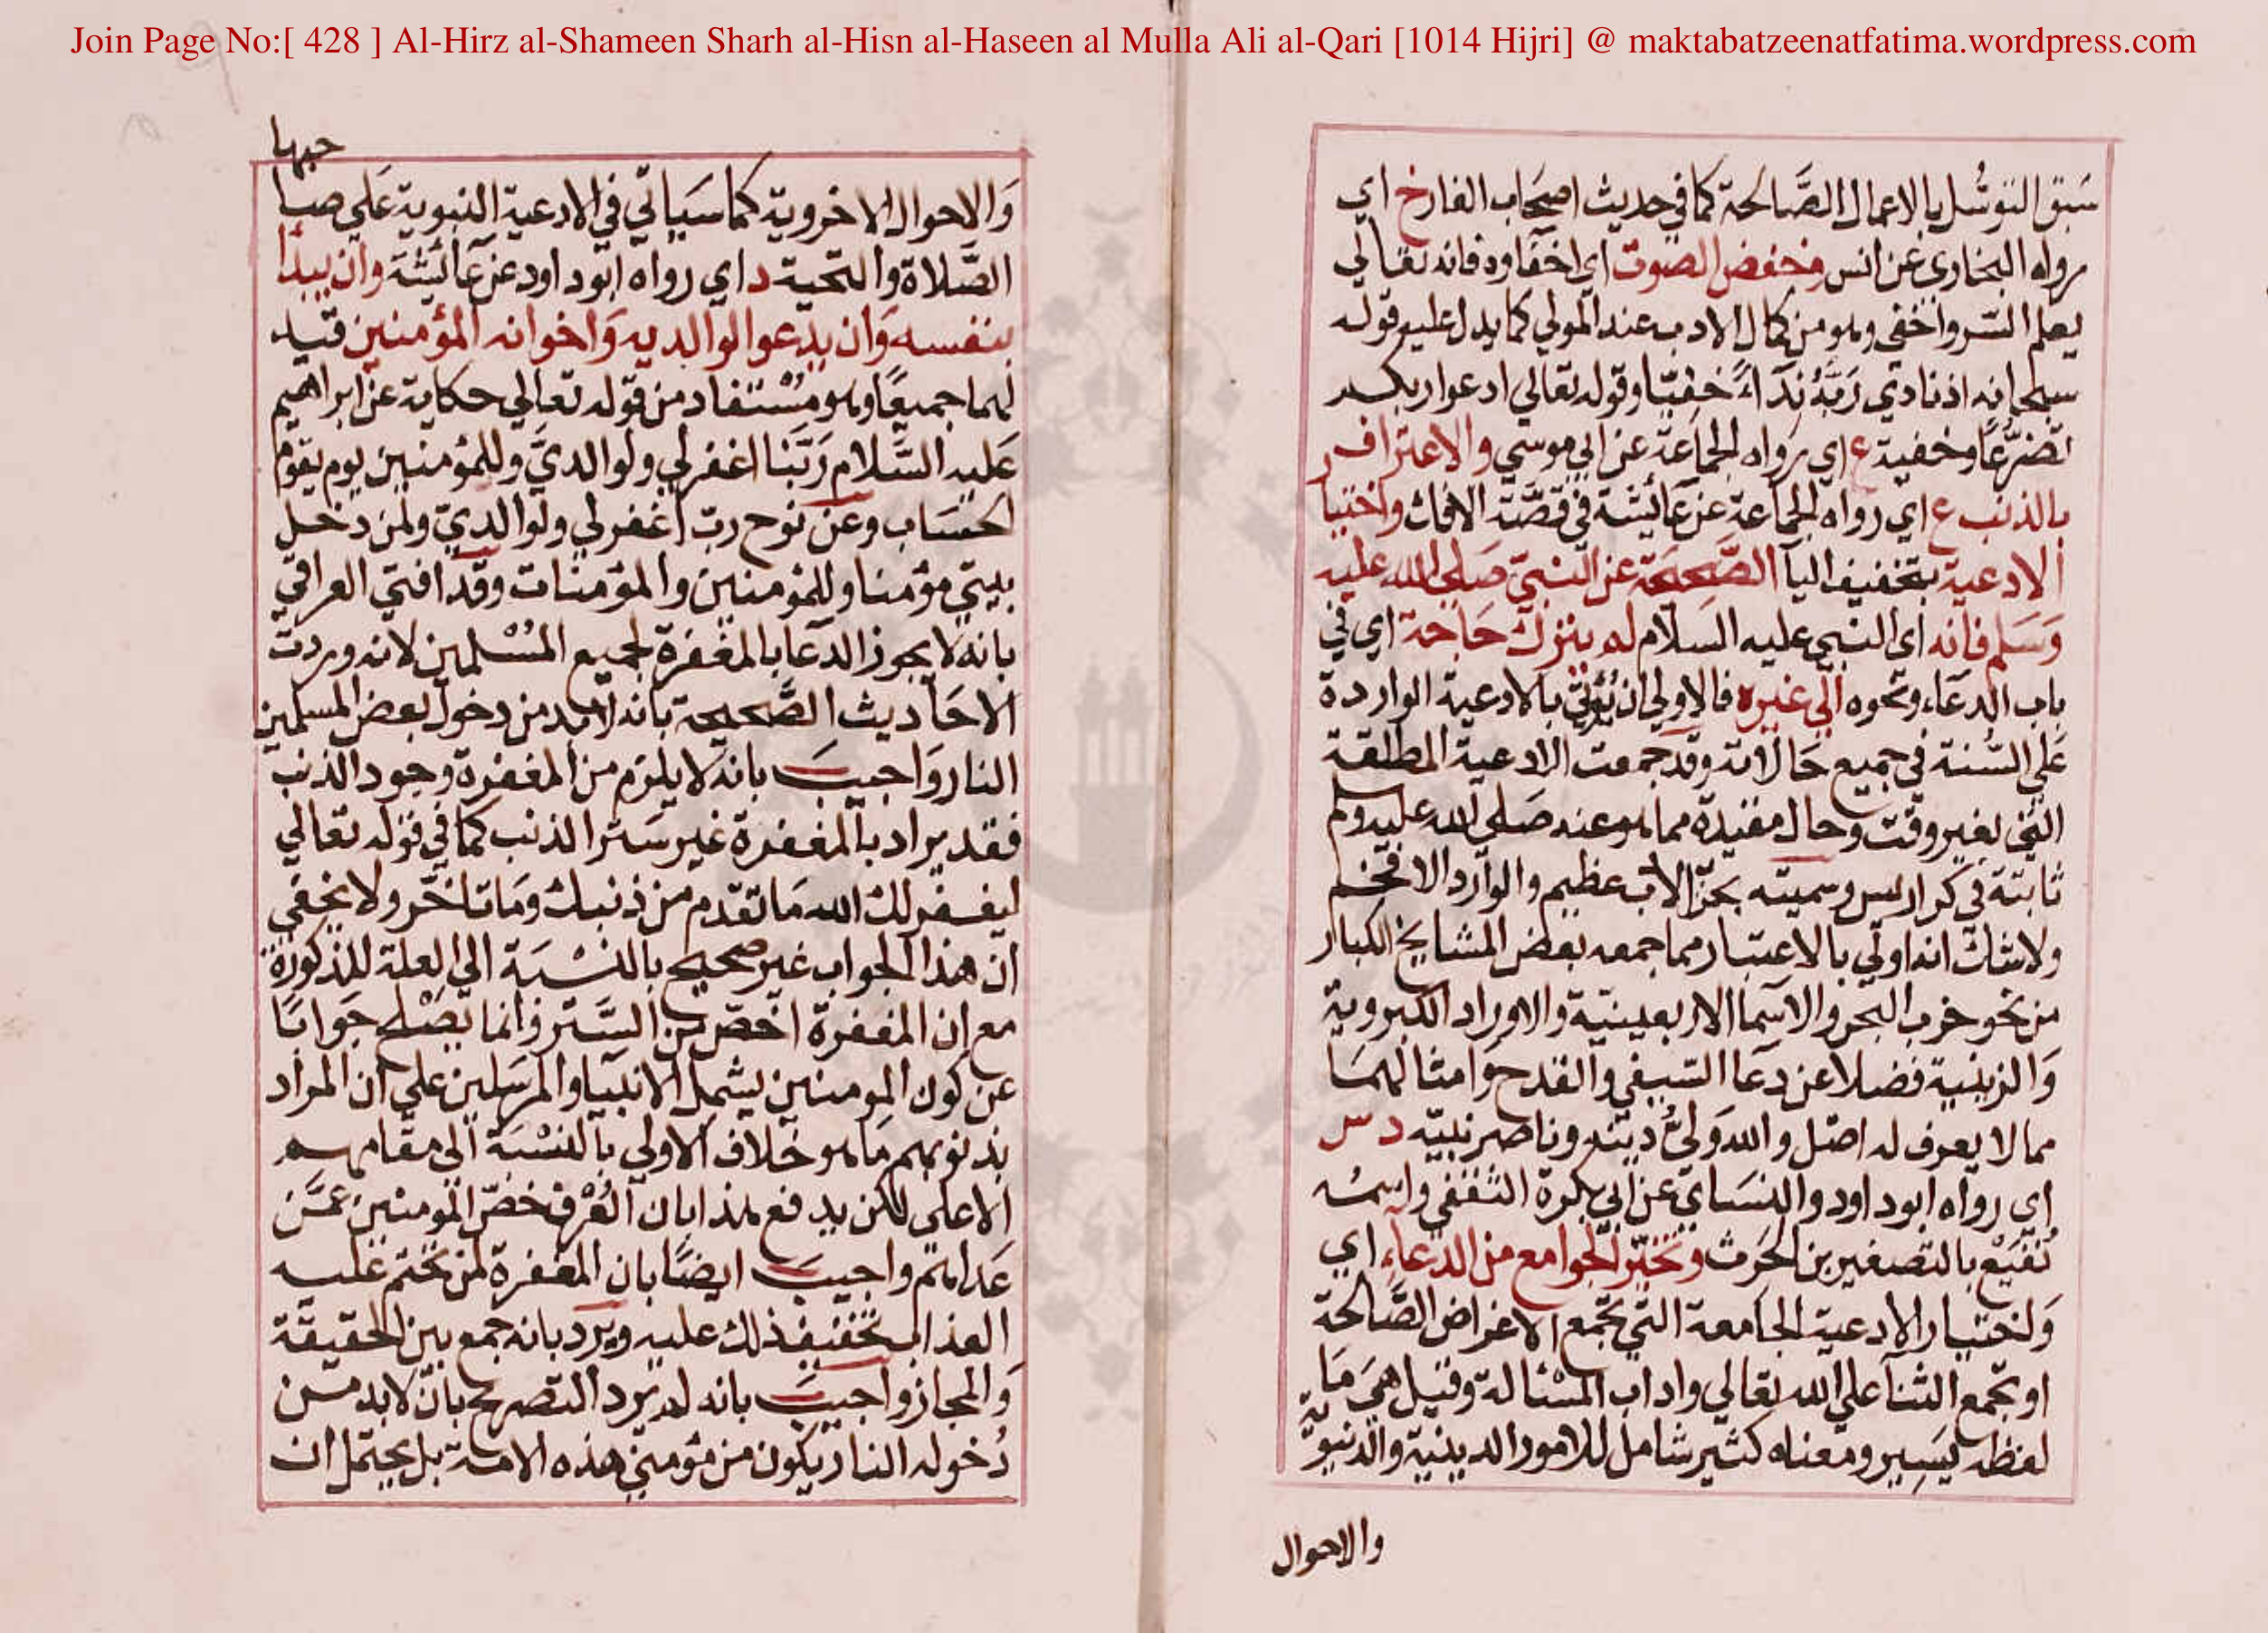 Join Page No:[ 428 ] Al-Hirz al-Shameen Sharh al-Hisn al-Haseen al Mulla Ali al-Qari [1014 Hijri] @ maktabatzeenatfatima.wordpress.com
سَبق التوسُّل بالاعمال الصَّالحة كما في حديث اصحَاب الغار خ اي
رواه البخاري عن انس وخفض الصوت اي اخفاوه فانه تعالي
يعلم السّر واخفي وهو من كمال الادب عند المولي كما يدل عليه قوله
سبحانه اذ نادي رَبَّهُ نِدَاءً خفيّا وقوله تعالي ادعوا ربكم
تضرّعًا وخفية ع اي رواه الجمَاعة عن ابي موسي والاعتراف
بالذنب ع اي رواه الجماعة عن عَائشة في قصّة الافك واختيار
الادعية بتخفيف اليآ الصَّحيحة عن النبيّ صَلي الله عليه
وَسَلم فانه اي النبي عليه السَلام لم يترك حَاجة اي في
باب الدعَاء ونحوه الي غيره فالاولي ان يُؤتي بالادعية الواردة
عَلي السُّنة في جميع حَالاته وقد جمعت الادعية المطلقة
التي بغير وقت وحال مقيدة مما هو عنه صَلي الله عليه وسلم
ثابتة في كراريس وسميته بحزب الاعظم والورد الافخم
ولا شك انه اولي بالاعتبار مما جمعه بعض المشايخ الكبار
من نحو حزب البحر والاسما الاربعينيّة والاوراد الكبروية
وَالزينية فضلا عن دعَا السّيفي والقدح وامثالهمَا
مما لا يعرف له اصل والله وَليُّ دينه وناصر نبيّه د س
اي رواه ابود اود والنسَاي عن ابي بكرة الثقفي واسمُه
نُفَيْع بالتصغير بن الحَرث وتخيّر الجوامع من الدعآءِ اي
وَاختيار الادعية الجامعة التي تجمع الاغراض الصَّالحة
او تجمع الثنآ علي الله تعالي واداب المسْئالة وقيل هيَ مَا
لفظه يَسِير ومعناه كثير شامل للامور الدينية والدنيويّة
والاحوال
وَالاحوال الاخروية كما سَياتي في الادعية النبوية عَلي صَاحبها
الصَّلاة والتحية د اي رواه ابود اود عن عَائشة وان يبدأ
بنفسه وَان يدعو لوالديه وَاخوانه المؤمنين قيد
لهما جميعًا وهو مُسْتفاد من قوله تعالي حكاية عن ابراهيم
عَليه السَّلام رَبَّنا اغفر لي ولوالديَّ وللمؤمنين يوم يقوم
الحسَاب وعن نوح رب اغفر لي ولوالديّ ولمن دخل
بيتي مؤمنا وللمؤمنين والمؤمنات وقد افتي العراقي
بانه لا يجوز الدعَا بالمغفرة لجميع المُسْلمين لانه وردت
الاحَاديث الصَّحيحة بانه لابد من دخول بعض المسلمين
النار وَاجيبَ بانه لا يلزم من المغفرة وجود الذنب
فقد يراد بالمغفرة غير سَتر الذنب كما في قوله تعالي
ليغفر لك الله مَا تقدم من ذنبك ومَا تاخّر ولا يخفي
ان هذا الجواب غير صحيح بالنسْبَة الي العلة المذكورة
مع ان المغفرة اخصّ من السَّتر وانما يصْلح جَوابًا
عن كون المومنين يشمل الانبيا والمرسَلين علي ان المراد
بذنوبهم مَا هو خلاف الاولي بالنسْبَة الي مقامهم
الاعلي لكن يدفع هذا بان العُرْف خصّ المومنين عمَّن
عَداهم واجيبَ ايضًا بان المغفرة لمن تحتم عليه
العذاب تخفيف ذلك عليه ويرد بانه جمع بين الحقيقة
وَالمجاز واجيبَ بانه لم يرد التصريح بان لابد من
دُخوله النار يكون من مؤمني هذه الامة بل يحتمل ان